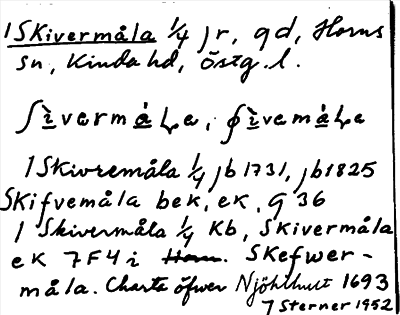 1 Skivermåla 1/4 jr, gd, Horns
sn, Kinda hd, Östg. l.
1 Skivremåla 1/4 jb 1731, jb 1825
Skifvemåla bek, ek, G 36
1 Skivermåla 1/4 Kb, Skivermåla
ek 7F4i Skefwer-
måla. Charta öfwer 1693
7 Sterner 1952